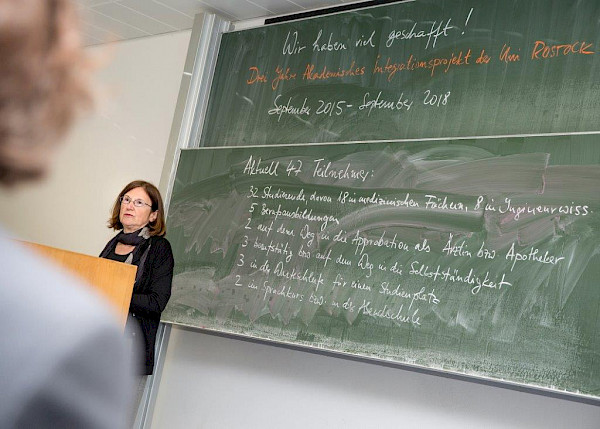 Wir haben viel geschafft!
Drei Jahre Akademisches Integrationsprojekt der Uni ROSTOCK
September 2015 - September 2018
Aktuell 47 Teilnehmer:
32 Studierende davon 18 in medizinischen Fächern, 8 in Ingenieurwiss.
5 Berufsausbildungen
2 auf dem Weg in die Approbation als Ärztin bzw Apotheker
3 berufstätig bzw auf dem Weg in die Selbstständigkeit
3 in der Warteschleife für einen Studienplatz
2 im Sprachkurs bzw. in der Abendschule